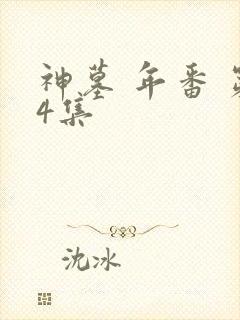 神墓 年番
4集
沈冰